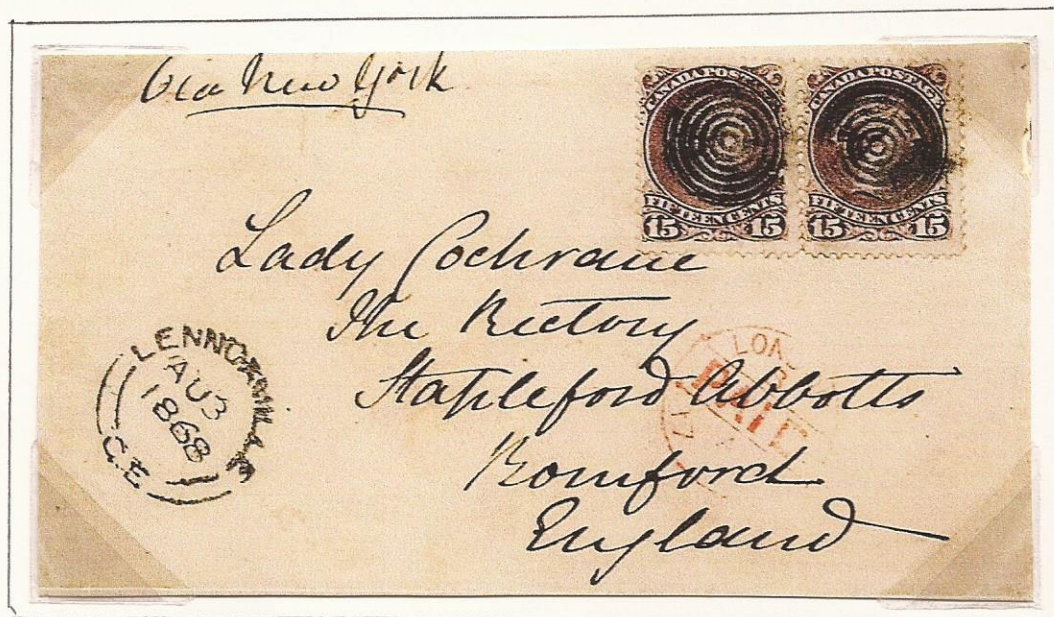 via New York
CANADA POSTAGE
FIFTEEN CENTS
15 15
CANADA POSTAGE
FIFTEEN CENTS
15 15
Lady Cochrane
The Rectory
Stapleford Abbotts
Romford
England
AU 3
1868
C.E.
PAID